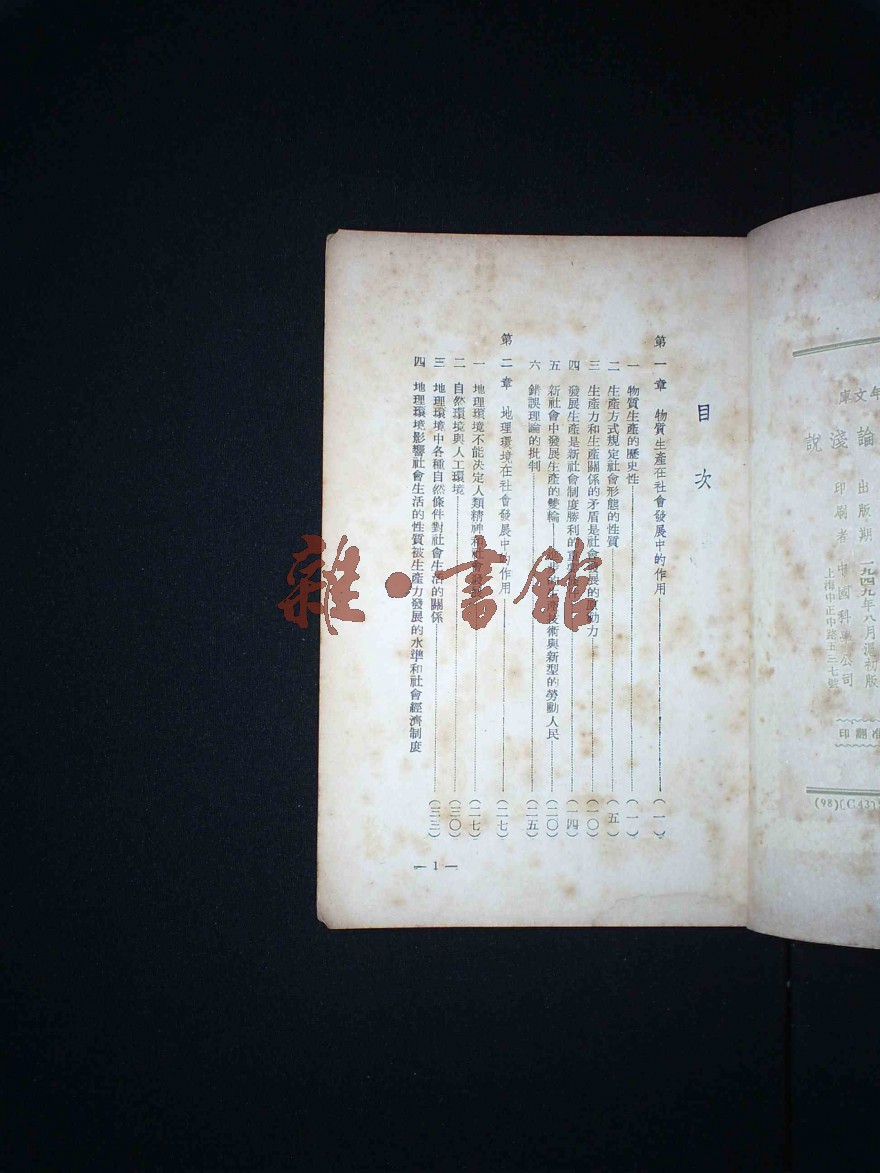 年文庫
論淺說
出版期 一九四九年八月滬初版
印刷者 中國科學公司
上海中正中路五三七號
准翻印
(98)[C.43]
目次
第一章 物質生產在社會發展中的作用 (一)
一 物質生產的歷史性 (一)
二 生產方式規定社會形態的性質 (五)
三 生產力和生產關係的矛盾是社會發展的原動力 (一〇)
四 發展生產是新社會制度勝利的 (一四)
五 新社會中發展生產的雙輪 技術與新型的勞動人民 (二〇)
六 錯誤理論的批判 (二五)
第二章 地理環境在社會發展中的作用 (二七)
一 地理環境不能決定人類精神和社會 (二七)
二 自然環境與人工環境 (三〇)
三 地理環境中各種自然條件對社會生活的關係 (三三)
四 地理環境影響社會生活的性質被生產力發展的水準和社會經濟制度
— 1 —
雜·書館